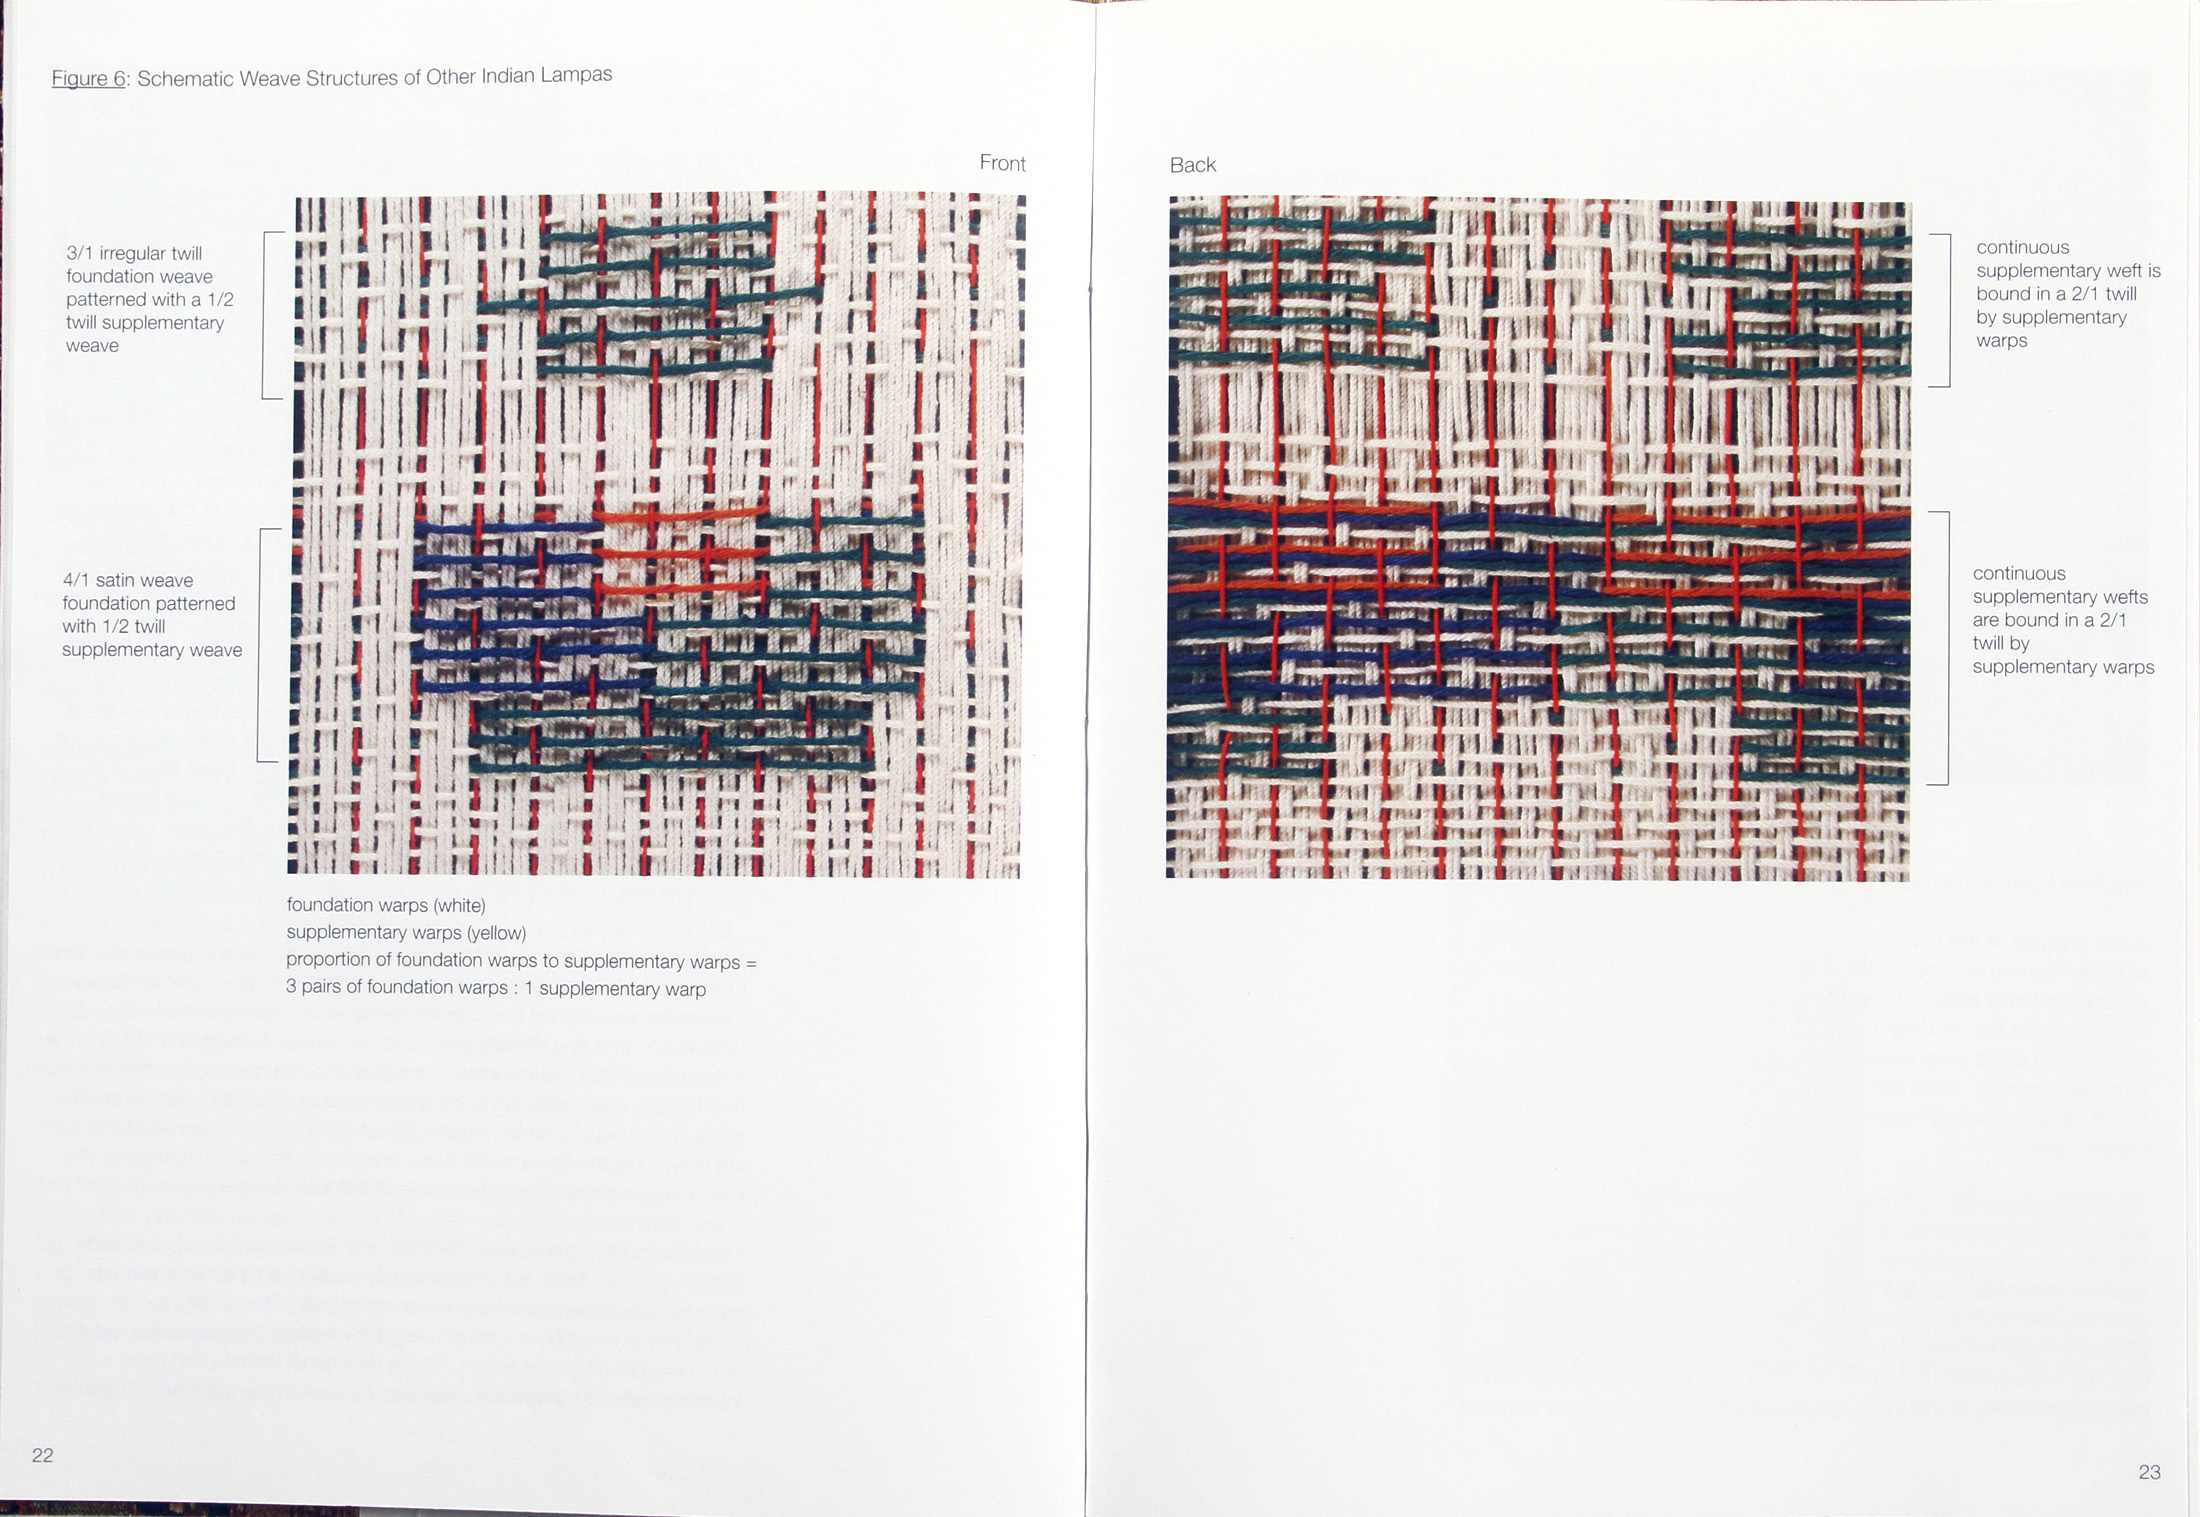 Figure 6: Schematic Weave Structures of Other Indian Lampas
Front
3/1 irregular twill
foundation weave
patterned with a 1/2
twill supplementary
weave
4/1 satin weave
foundation patterned
with 1/2 twill
supplementary weave
foundation warps (white)
supplementary warps (yellow)
proportion of foundation warps to supplementary warps =
3 pairs of foundation warps : 1 supplementary warp
22
Back
continuous
supplementary weft is
bound in a 2/1 twill
by supplementary
warps
continuous
supplementary wefts
are bound in a 2/1
twill by
supplementary warps
23